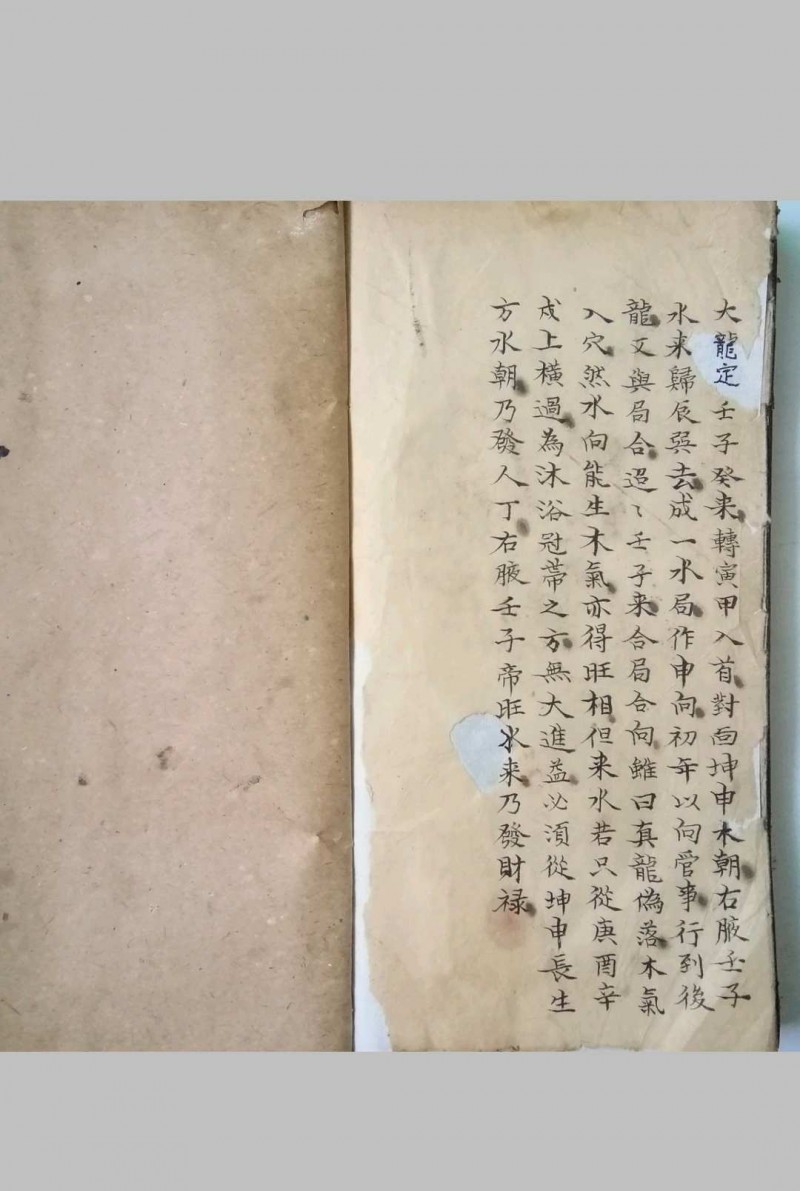 大龍定壬子癸来轉寅甲入首對面坤申水朝右腋壬子
水来歸辰巽去成一水局作申向初年以向管事行到後
龍又與局合迢〻壬子来合局合向雖曰真龍偽落木氣
入穴然水向能生木氣亦得旺相但来水若只從庚酉辛
戍上橫過為沐浴冠帶之方無大進益必須從坤申長生
方水朝乃發人丁右腋壬子帝旺水来乃發財祿